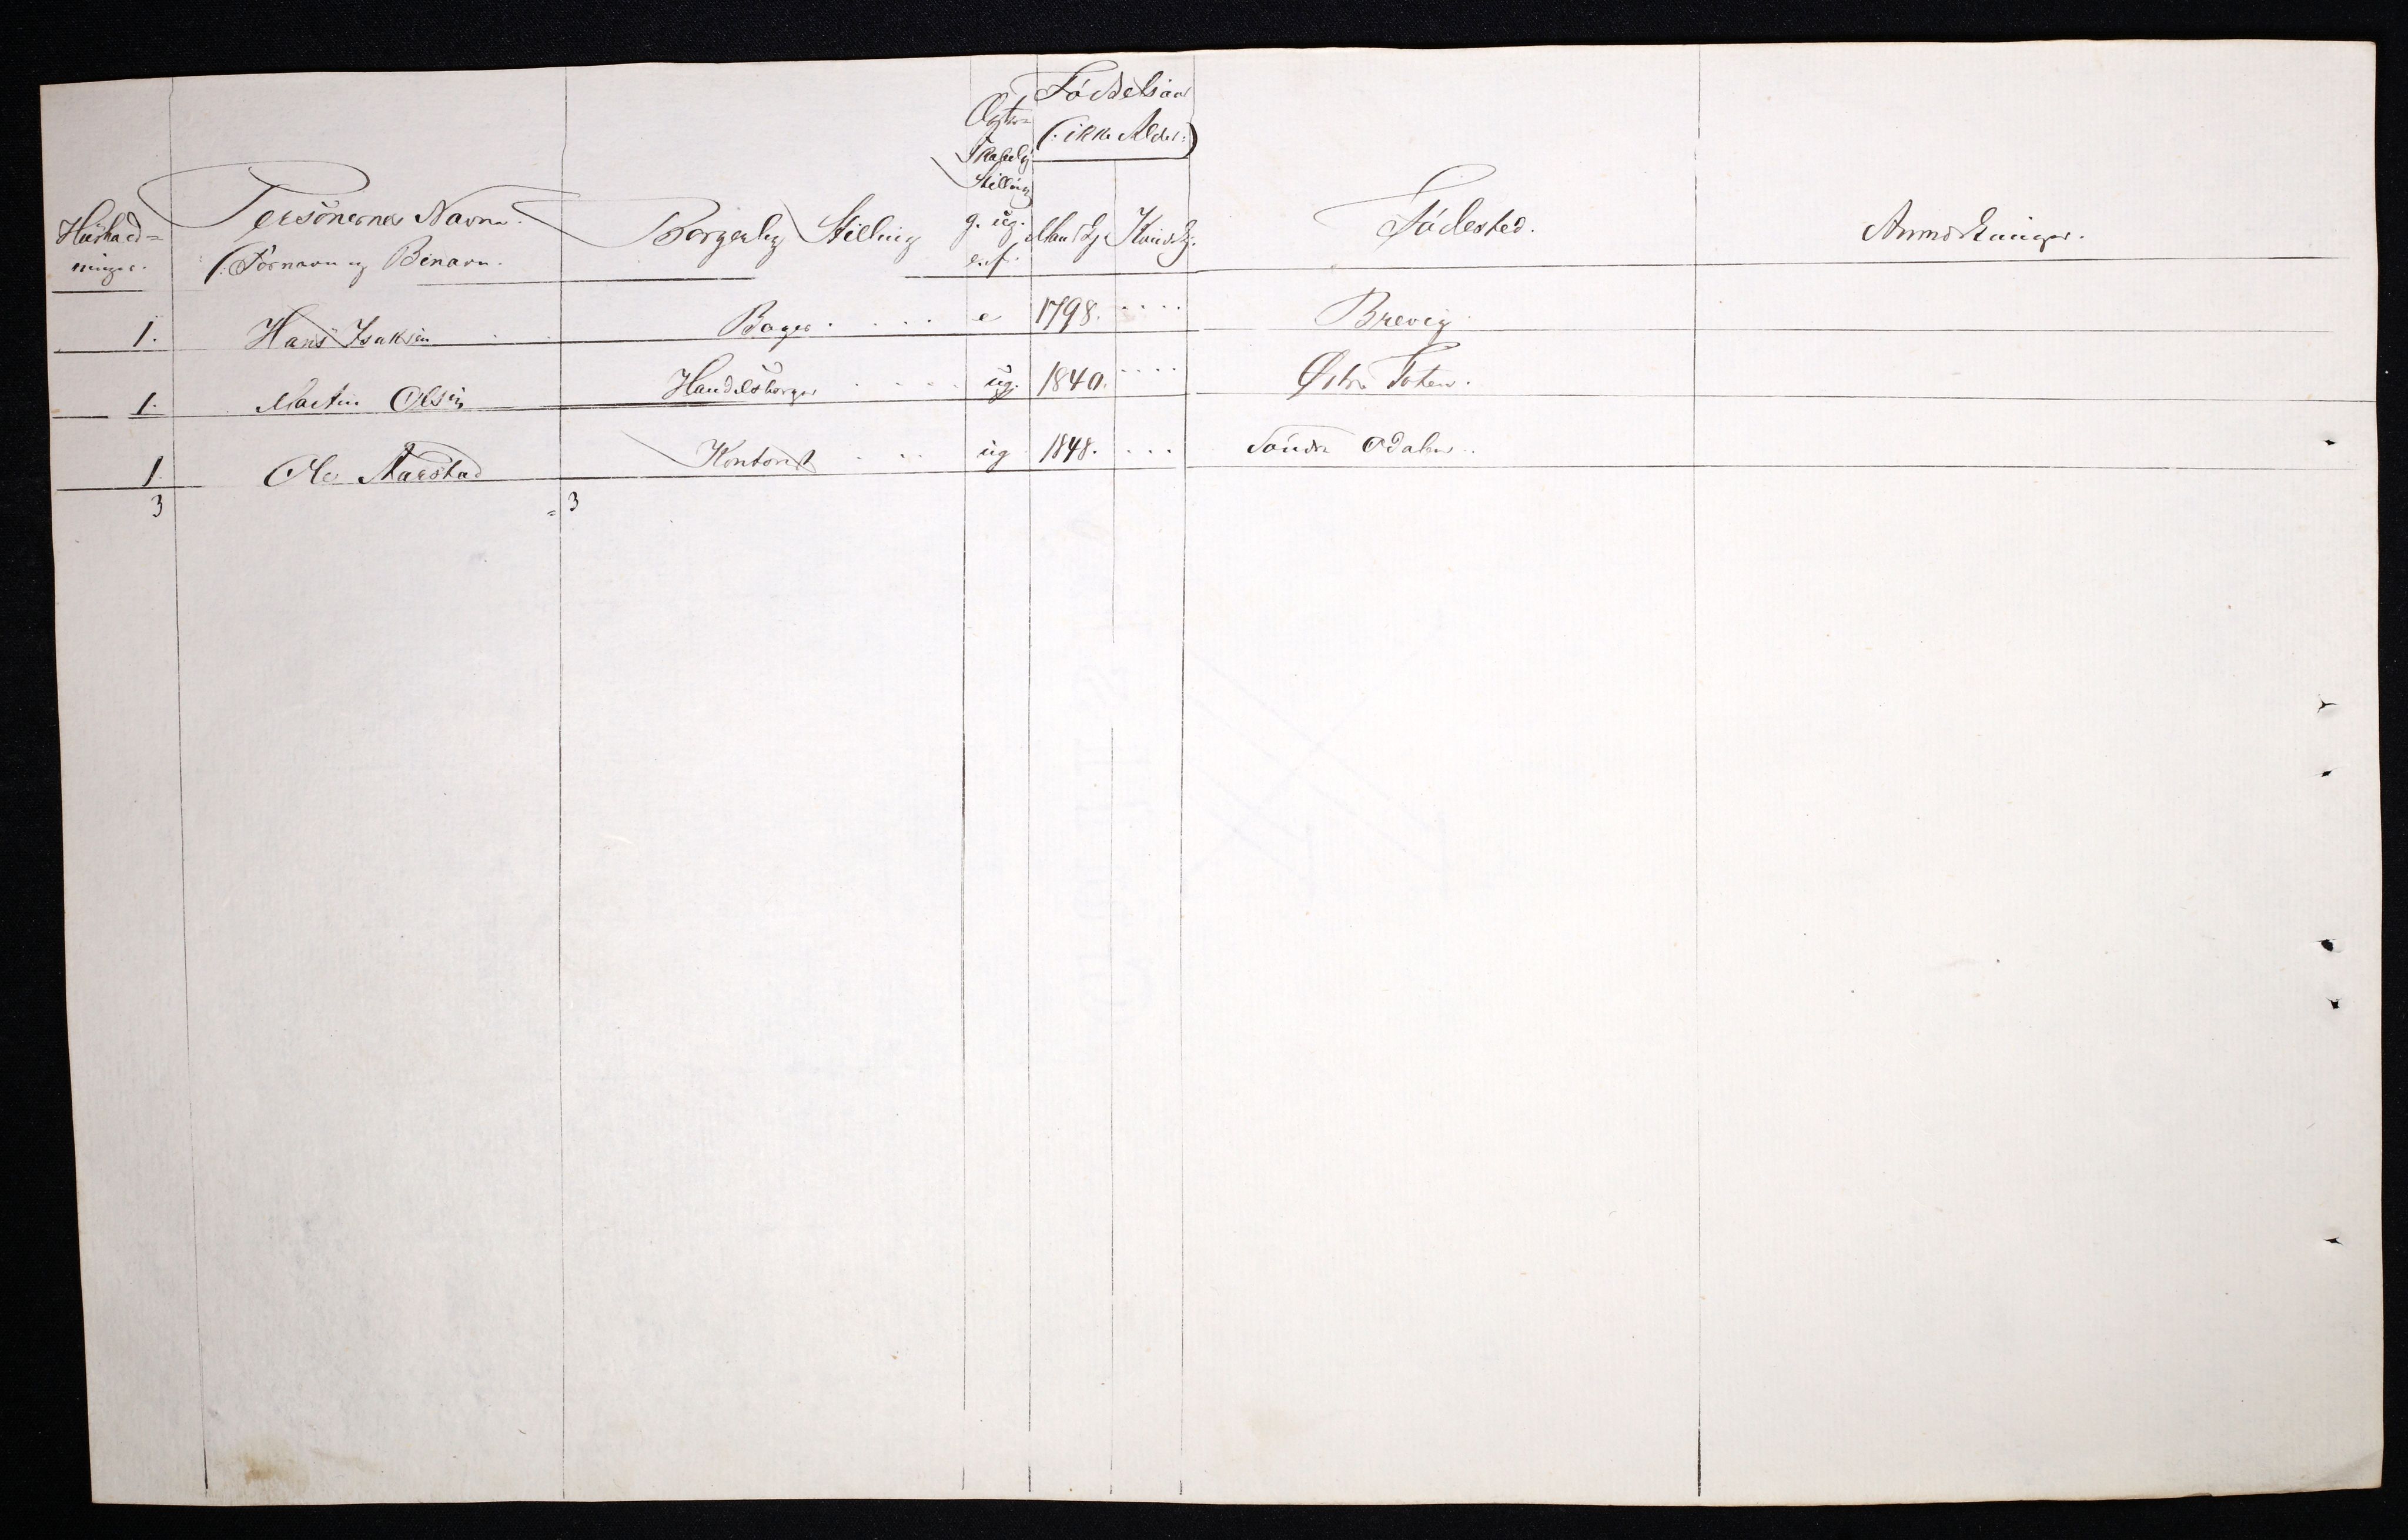 Husholdninger.
Personernes Navne
(: Fornavn og Binavn.
Borgerlig Stilling
Ægteskabelig Stilling g. ug. e. f.
Fødselsaar
(: ikke Alder :)
Mandkj. Kvindkj.
Fødested.
Anmærkninger.
1. Hans Isaksen Bager. e 1798. Brevig
1. Martin Olsen Handelsborger ug. 1840. Østre Toten.
1. Ole Aarstad Kontorist ug 1848. Søndre Odalen.
3 = 3